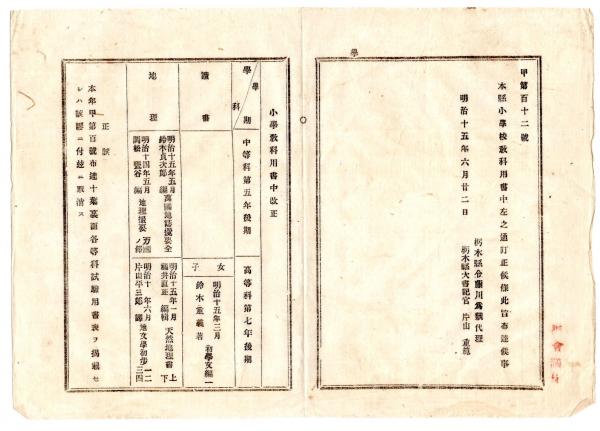 學
甲第百十二號
本縣小學校敎科用書中左之通訂正候條此旨布達候事
明治十五年六月廿二日
栃木縣令藤川爲親代理
栃木縣大書記官 片山重範
小學敎科用書中改正
學期
學科
中等科第五年後期
高等科第七年後期
讀書
女子
明治十五年三月
鈴木重義著
新學女編一
地理
明治十五年五月
鈴木貞次郎 編
萬國地誌撮要全
明治十四年五月
編 地理撮要 萬國ノ部
明治十五年一月
福井直正 編輯 天然地理書 上下
明治十 年六月
片山平三郎 譯 地文學初歩 一二三四
正誤
本年甲第百號布達十葉裏面各等科試驗用書表ヲ揭載セ
シハ誤謬ニ付玆ニ取消ス